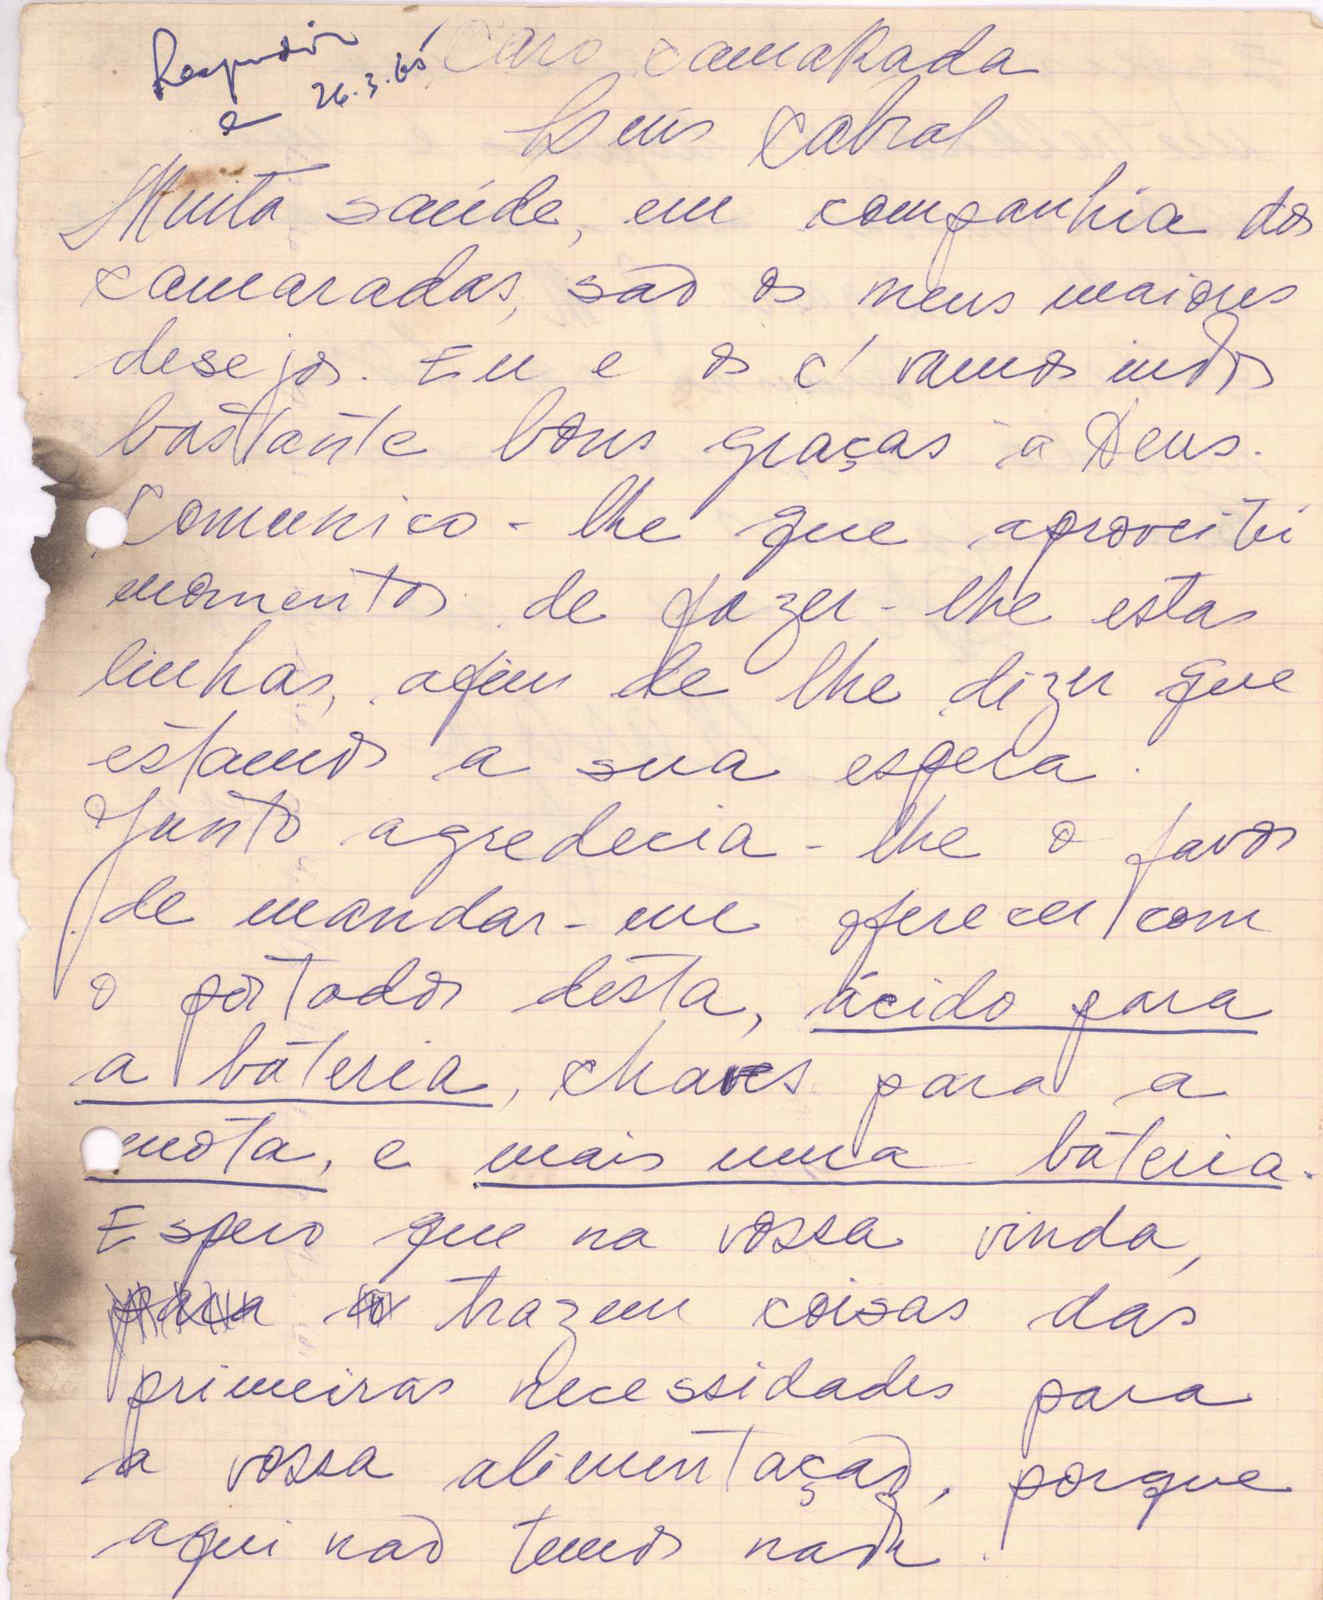 Respondido
e 26.3.65
Caro camaRada
Luis Cabral
Muita saúde, em companhia dos
camaradas, são os meus maiores
desejos. Eu e os c/ vamos indos
bastante bons graças a Deus.
Comunico-lhe que aproveiti
momentos de fazer-lhe estas
linhas, afim de lhe dizer que
estamos a sua espera.
Junto agredecia-lhe o favor
de mandar-me oferecer com
o portador desta, ácido para
a bateria, chaves para a
mota, e mais uma bateria.
Espero que na vossa vinda,
trazem coisas das
primeiras necessidades para
a vossa alimentação, porque
aqui não temos nada.